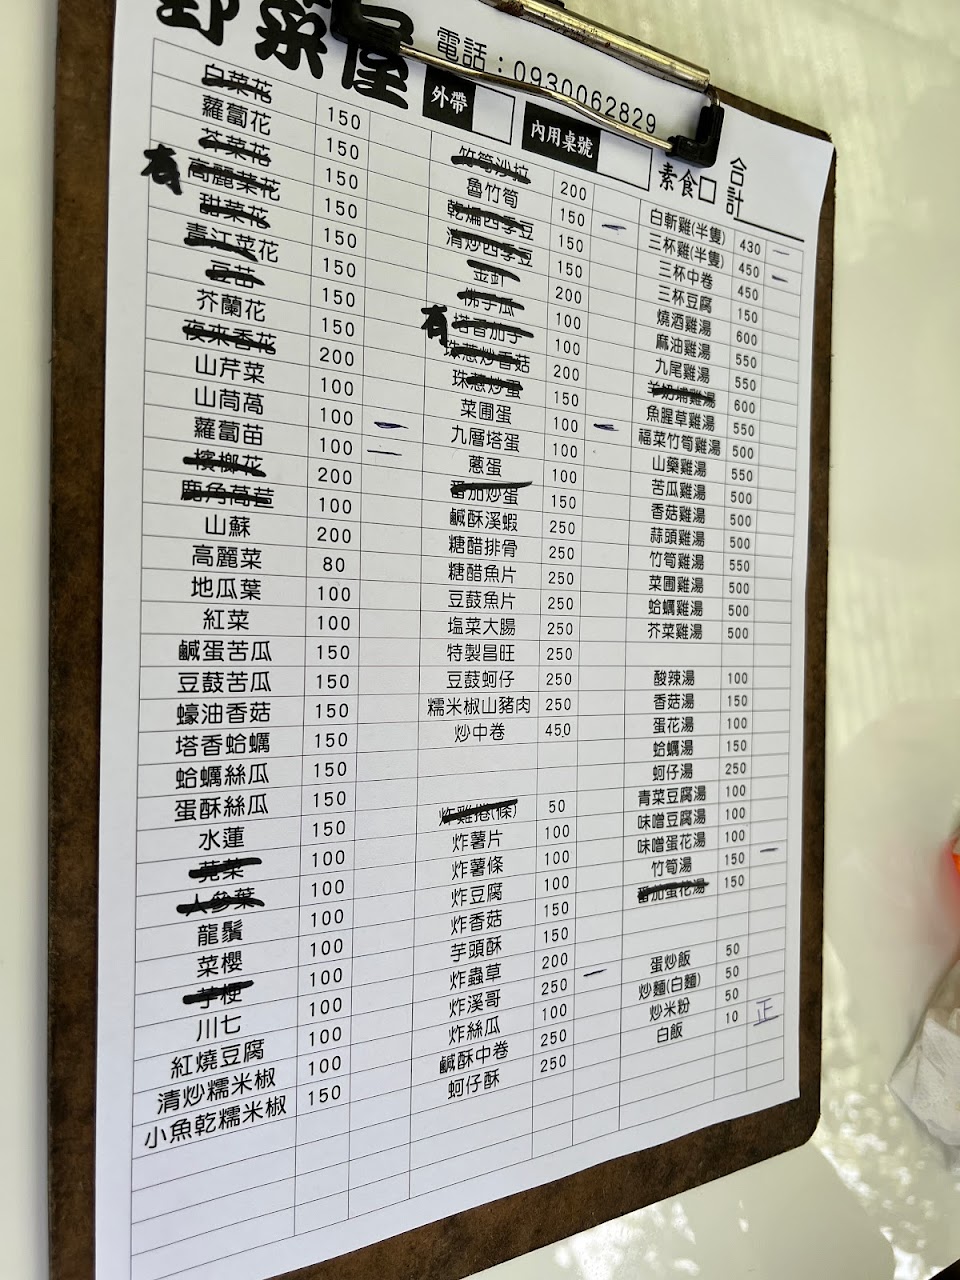 野菜屋
電話：0930062829
外帶
內用桌號
素食□
合計
白菜花 150
蘿蔔花 150
芥菜花 150
有 高麗菜花 150
甜菜花 150
青江菜花 150
豆苗 150
芥蘭花 150
夜來香花 200
山芹菜 100
山茼萵 100 一
蘿蔔苗 100 一
檳榔花 200
鹿角萵苣 100
山蘇 200
高麗菜 80
地瓜葉 100
紅菜 100
鹹蛋苦瓜 150
豆鼓苦瓜 150
蠔油香菇 150
塔香蛤蠣 150
蛤蠣絲瓜 150
蛋酥絲瓜 150
水蓮 150
莧菜 100
人參葉 100
龍鬚 100
菜櫻 100
芋梗 100
川七 100
紅燒豆腐 100
清炒糯米椒 100
小魚乾糯米椒 150
竹筍沙拉 200
魯竹筍 150 一
乾煸四季豆 150
清炒四季豆 150
金針 200
佛手瓜 100
有 塔香茄子 100
珠蔥炒香菇 200
珠蔥炒蛋 150
菜圃蛋 100 一
九層塔蛋 100
蔥蛋 100
番茄炒蛋 150
鹹酥溪蝦 250
糖醋排骨 250
糖醋魚片 250
豆鼓魚片 250
塩菜大腸 250
特製昌旺 250
豆鼓蚵仔 250
糯米椒山豬肉 250
炒中卷 450
炸雞捲(條) 50
炸薯片 100
炸薯條 100
炸豆腐 100
炸香菇 150
芋頭酥 150
炸蟲草 200 一
炸溪哥 250
炸絲瓜 100
鹹酥中卷 250
蚵仔酥 250
白斬雞(半隻) 430 一
三杯雞(半隻) 450 一
三杯中卷 450
三杯豆腐 150
燒酒雞湯 600
麻油雞湯 550
九尾雞湯 550
羊奶埔雞湯 600
魚腥草雞湯 550
福菜竹筍雞湯 500
山藥雞湯 550
苦瓜雞湯 500
香菇雞湯 500
蒜頭雞湯 500
竹筍雞湯 550
菜圃雞湯 500
蛤蠣雞湯 500
芥菜雞湯 500
酸辣湯 100
香菇湯 150
蛋花湯 100
蛤蠣湯 150
蚵仔湯 250
青菜豆腐湯 100
味噌豆腐湯 100
味噌蛋花湯 100
竹筍湯 150 一
番茄蛋花湯 150
蛋炒飯 50
炒麵(白麵) 50
炒米粉 50
白飯 10 正